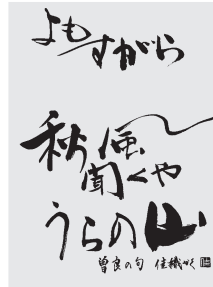 よもすがら
秋風
聞くや
うらの山
曽良の句 佳織かく